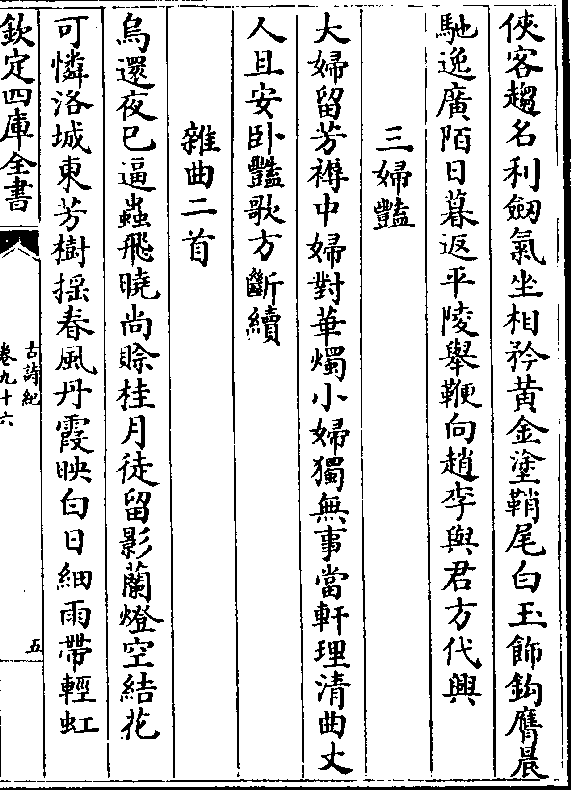 俠客趨名利劒氣坐相矜黃金塗鞘尾白玉飾鈎膺晨
馳逸廣陌日暮返平陵舉鞭向趙李與君方代興
三婦豔
大婦留芳褥中婦對華燭小婦獨無事當軒理清曲丈
人且安卧豔歌方斷續
雜曲二首
烏還夜已逼蟲飛曉尚賒桂月徒留影蘭燈空結花
可憐洛城東芳樹揺春風丹霞映白日細雨帶輕虹
欽定四庫全書
古詩紀
卷九十六
五